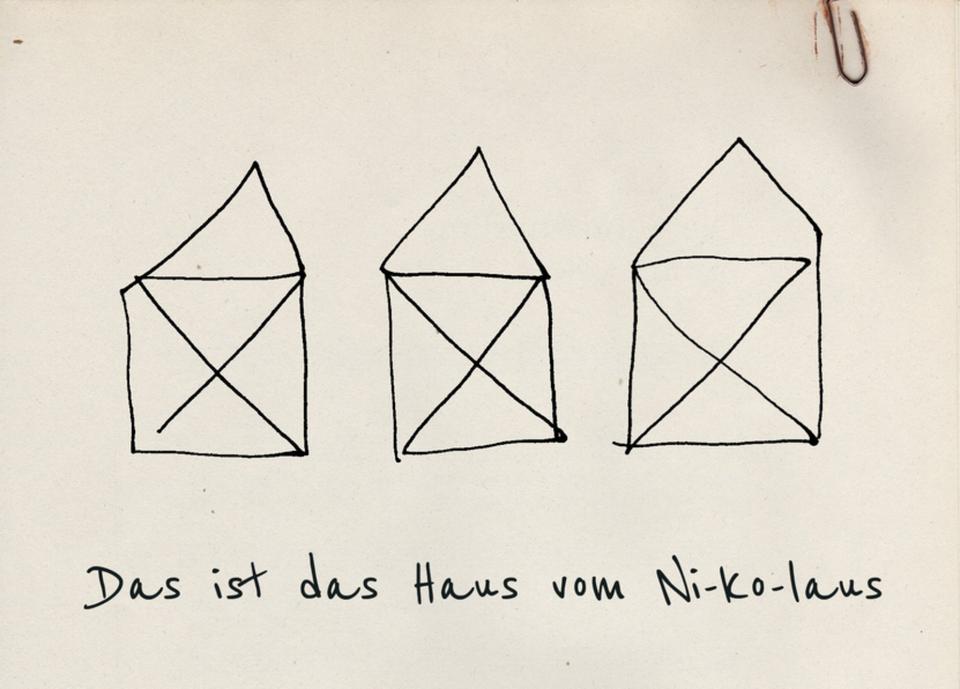 Das ist das Haus vom Ni-ko-laus